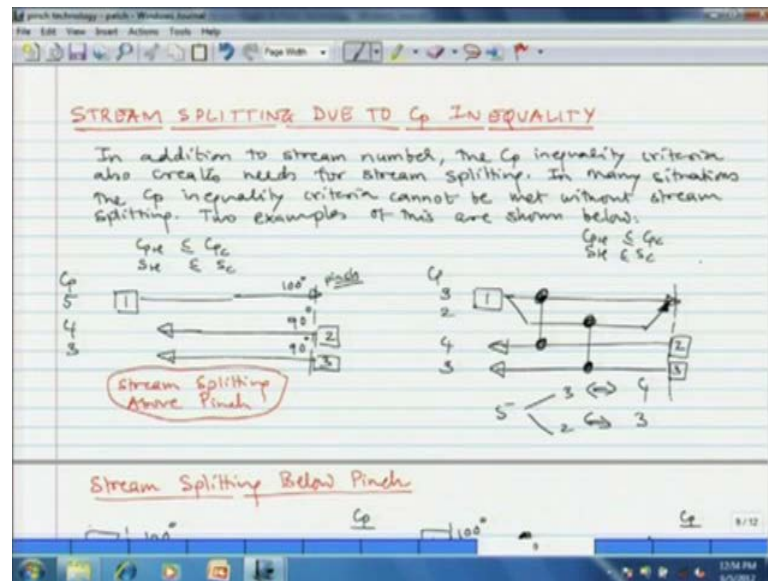 pinch technology - patch - Windows Journal
File Edit View Insert Actions Tools Help
Page Width
STREAM SPLITTING DUE TO Cp INEQUALITY
In addition to stream number, the Cp inequality criteria
also creates needs for stream splitting. In many situations
the Cp inequality criteria cannot be met without stream
splitting. Two examples of this are shown below:
CpH ≤ CpC
SH ≤ SC
Cp
5 1 100° pinch
4 90° 2
3 90° 3
Stream Splitting
Above Pinch
CpH ≤ CpC
SH ≤ SC
Cp
3 1
2
4 2
3 3
5 3 ↔ 4
2 ↔ 3
Stream Splitting Below Pinch
Cp Cp
100° 100°
9/12
9
12:54 PM